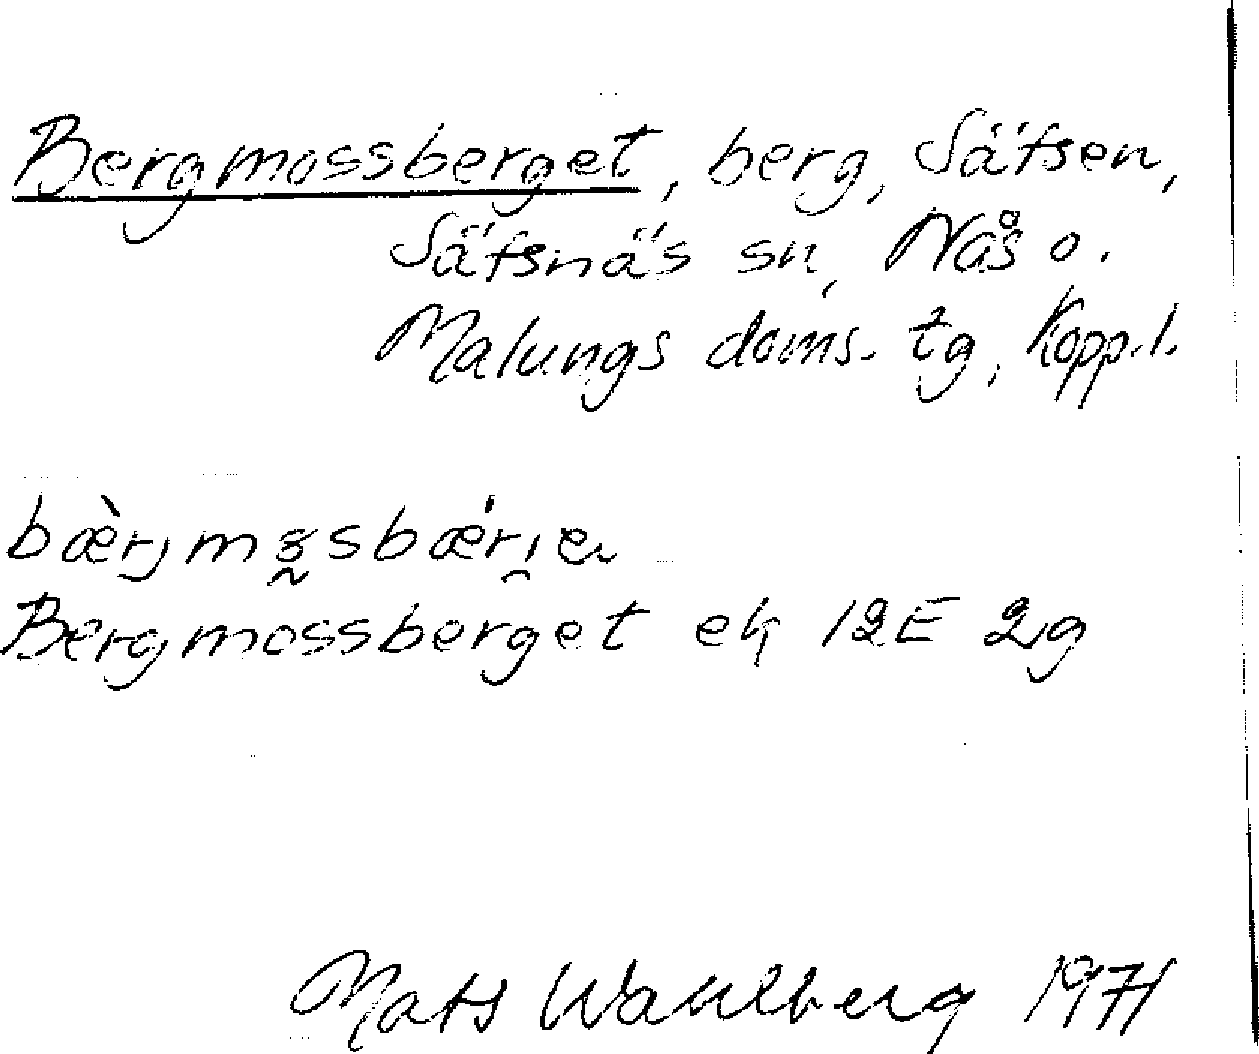 Bergmossberget, berg, Säfsen,
Säfsnäs sn, Nås o.
Malungs doms. tg, Kopp.l.
Bergmossberget ek 12E 2g
Mats Wahlberg 1971